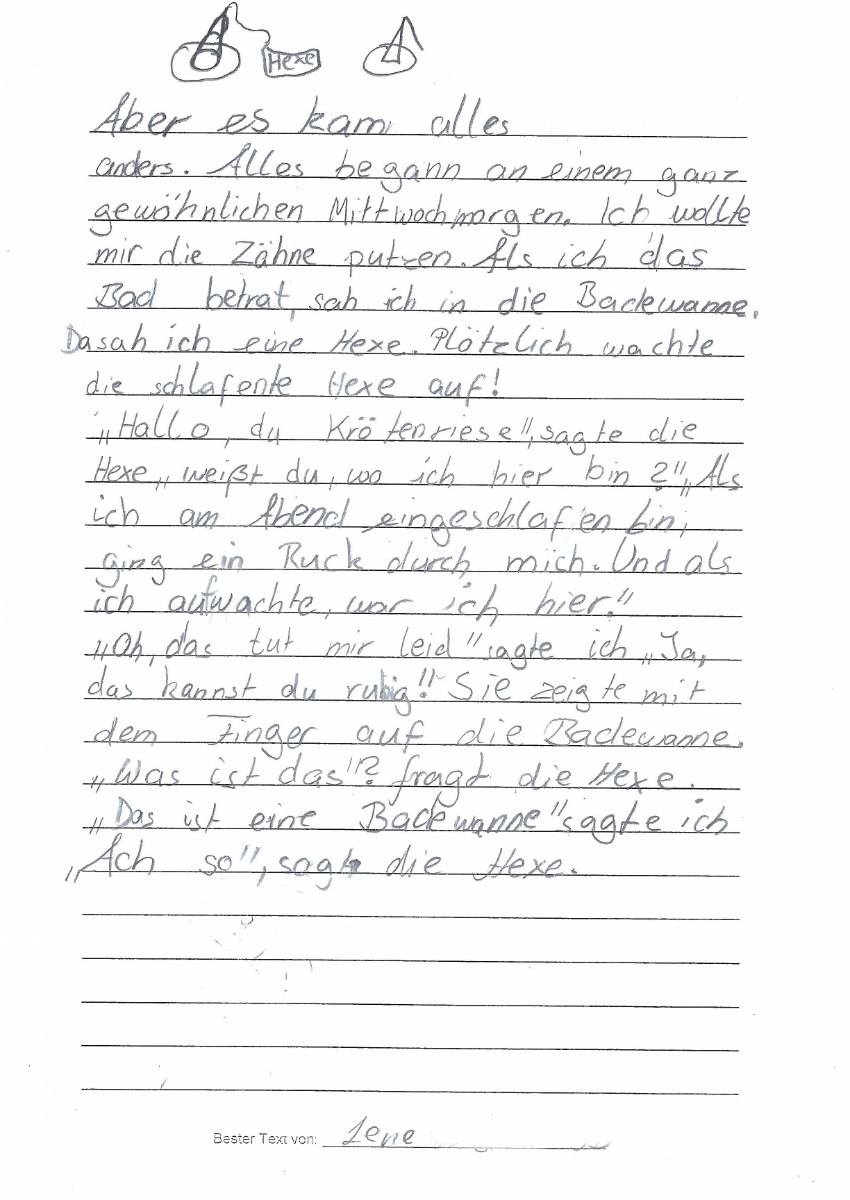 Hexe
Aber es kam alles
anders. Alles begann an einem ganz
gewöhnlichen Mittwochmorgen. Ich wollte
mir die Zähne putzen. Als ich das
Bad betrat, sah ich in die Badewanne.
Da sah ich eine Hexe. Plötzlich wachte
die schlafente Hexe auf!
„Hallo, du Krötenriese", sagte die
Hexe „weißt du, wo ich hier bin?" „Als
ich am Abend eingeschlafen bin,
ging ein Ruck durch mich. Und als
ich aufwachte, war ich hier."
„Oh, das tut mir leid" sagte ich „Ja,
das kannst du ruhig!" Sie zeigte mit
dem Finger auf die Badewanne.
„Was ist das"? fragt die Hexe.
„Das ist eine Badewanne" sagte ich
„Ach so", sagte die Hexe.
Bester Text von: Lene